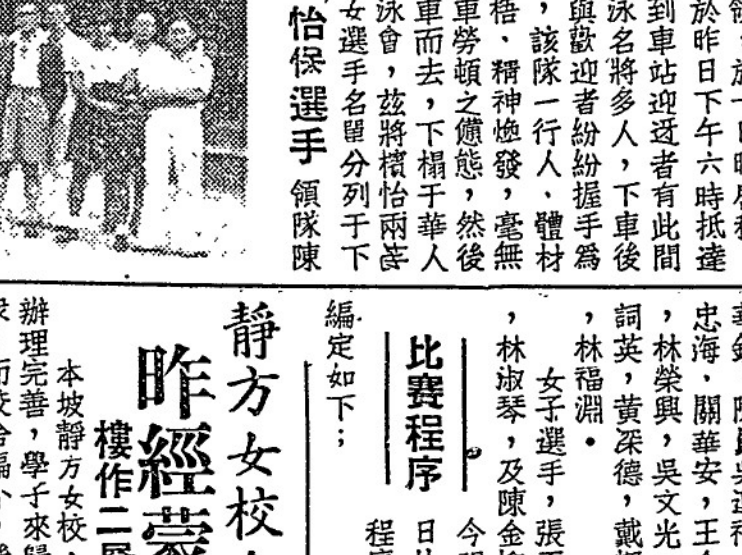 於昨日下午六時抵達
到車站迎迓者有此間
泳名將多人，下車後
與歡迎者紛紛握手爲
，該隊一行人、體材
梧、精神煥發，毫無
車勞頓之憊態，然後
車而去，下榻于華人
泳會，茲將檳怡兩
女選手名單分列于下
怡保選手 領隊陳
忠海、關華安，王
，林榮興，吳文光
詞英，黃深德，戴
，林福淵。
女子選手，張
，林淑琴，及陳金
今
日
比賽程序
程
編定如下；
靜方女校
昨經蒙
樓作二
本坡靜方女校，
辦理完善，學子來歸